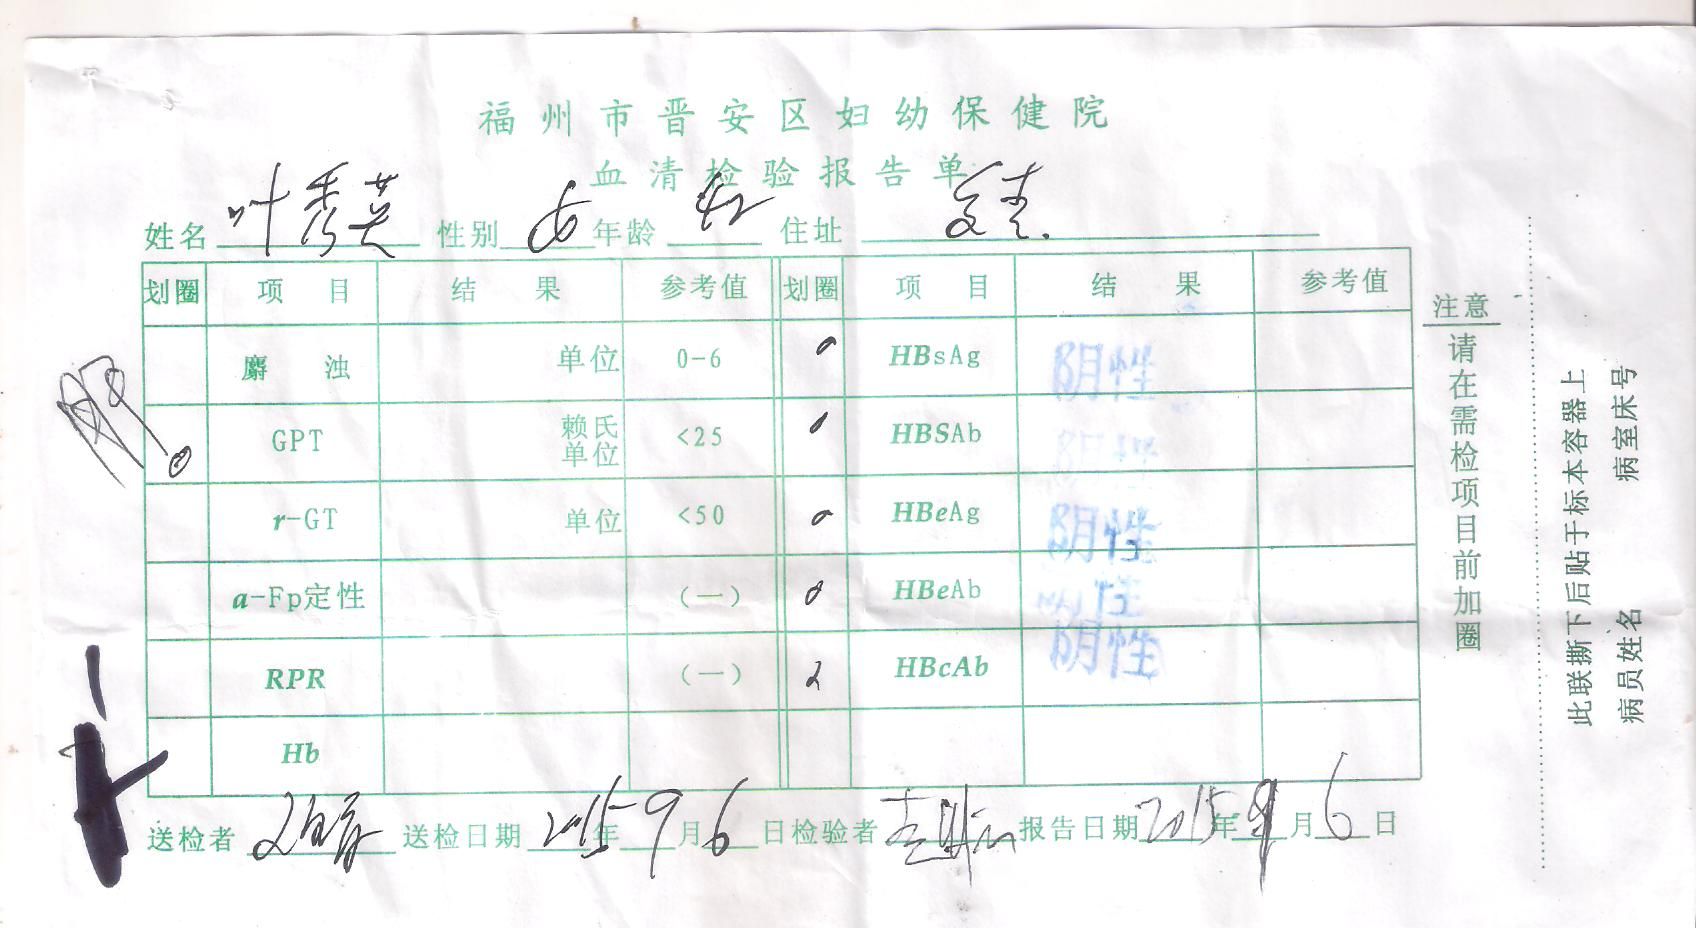 福州市晋安区妇幼保健院
血清检验报告单
姓名 叶秀英 性别 女 年龄 42 住址
划圈 项目 结果 参考值 划圈 项目 结果 参考值
麝浊 单位 0-6 HBsAg 阴性
GPT 赖氏单位 <25 HBSAb 阴性
r-GT 单位 <50 HBeAg 阴性
a-Fp定性 (一) HBeAb 阴性
RPR (一) HBcAb 阴性
Hb
送检者 送检日期 2015年9月6日 检验者 报告日期 2015年9月6日
注意
请在需检项目前加圈
此联撕下后贴于标本容器上
病员姓名 病室床号